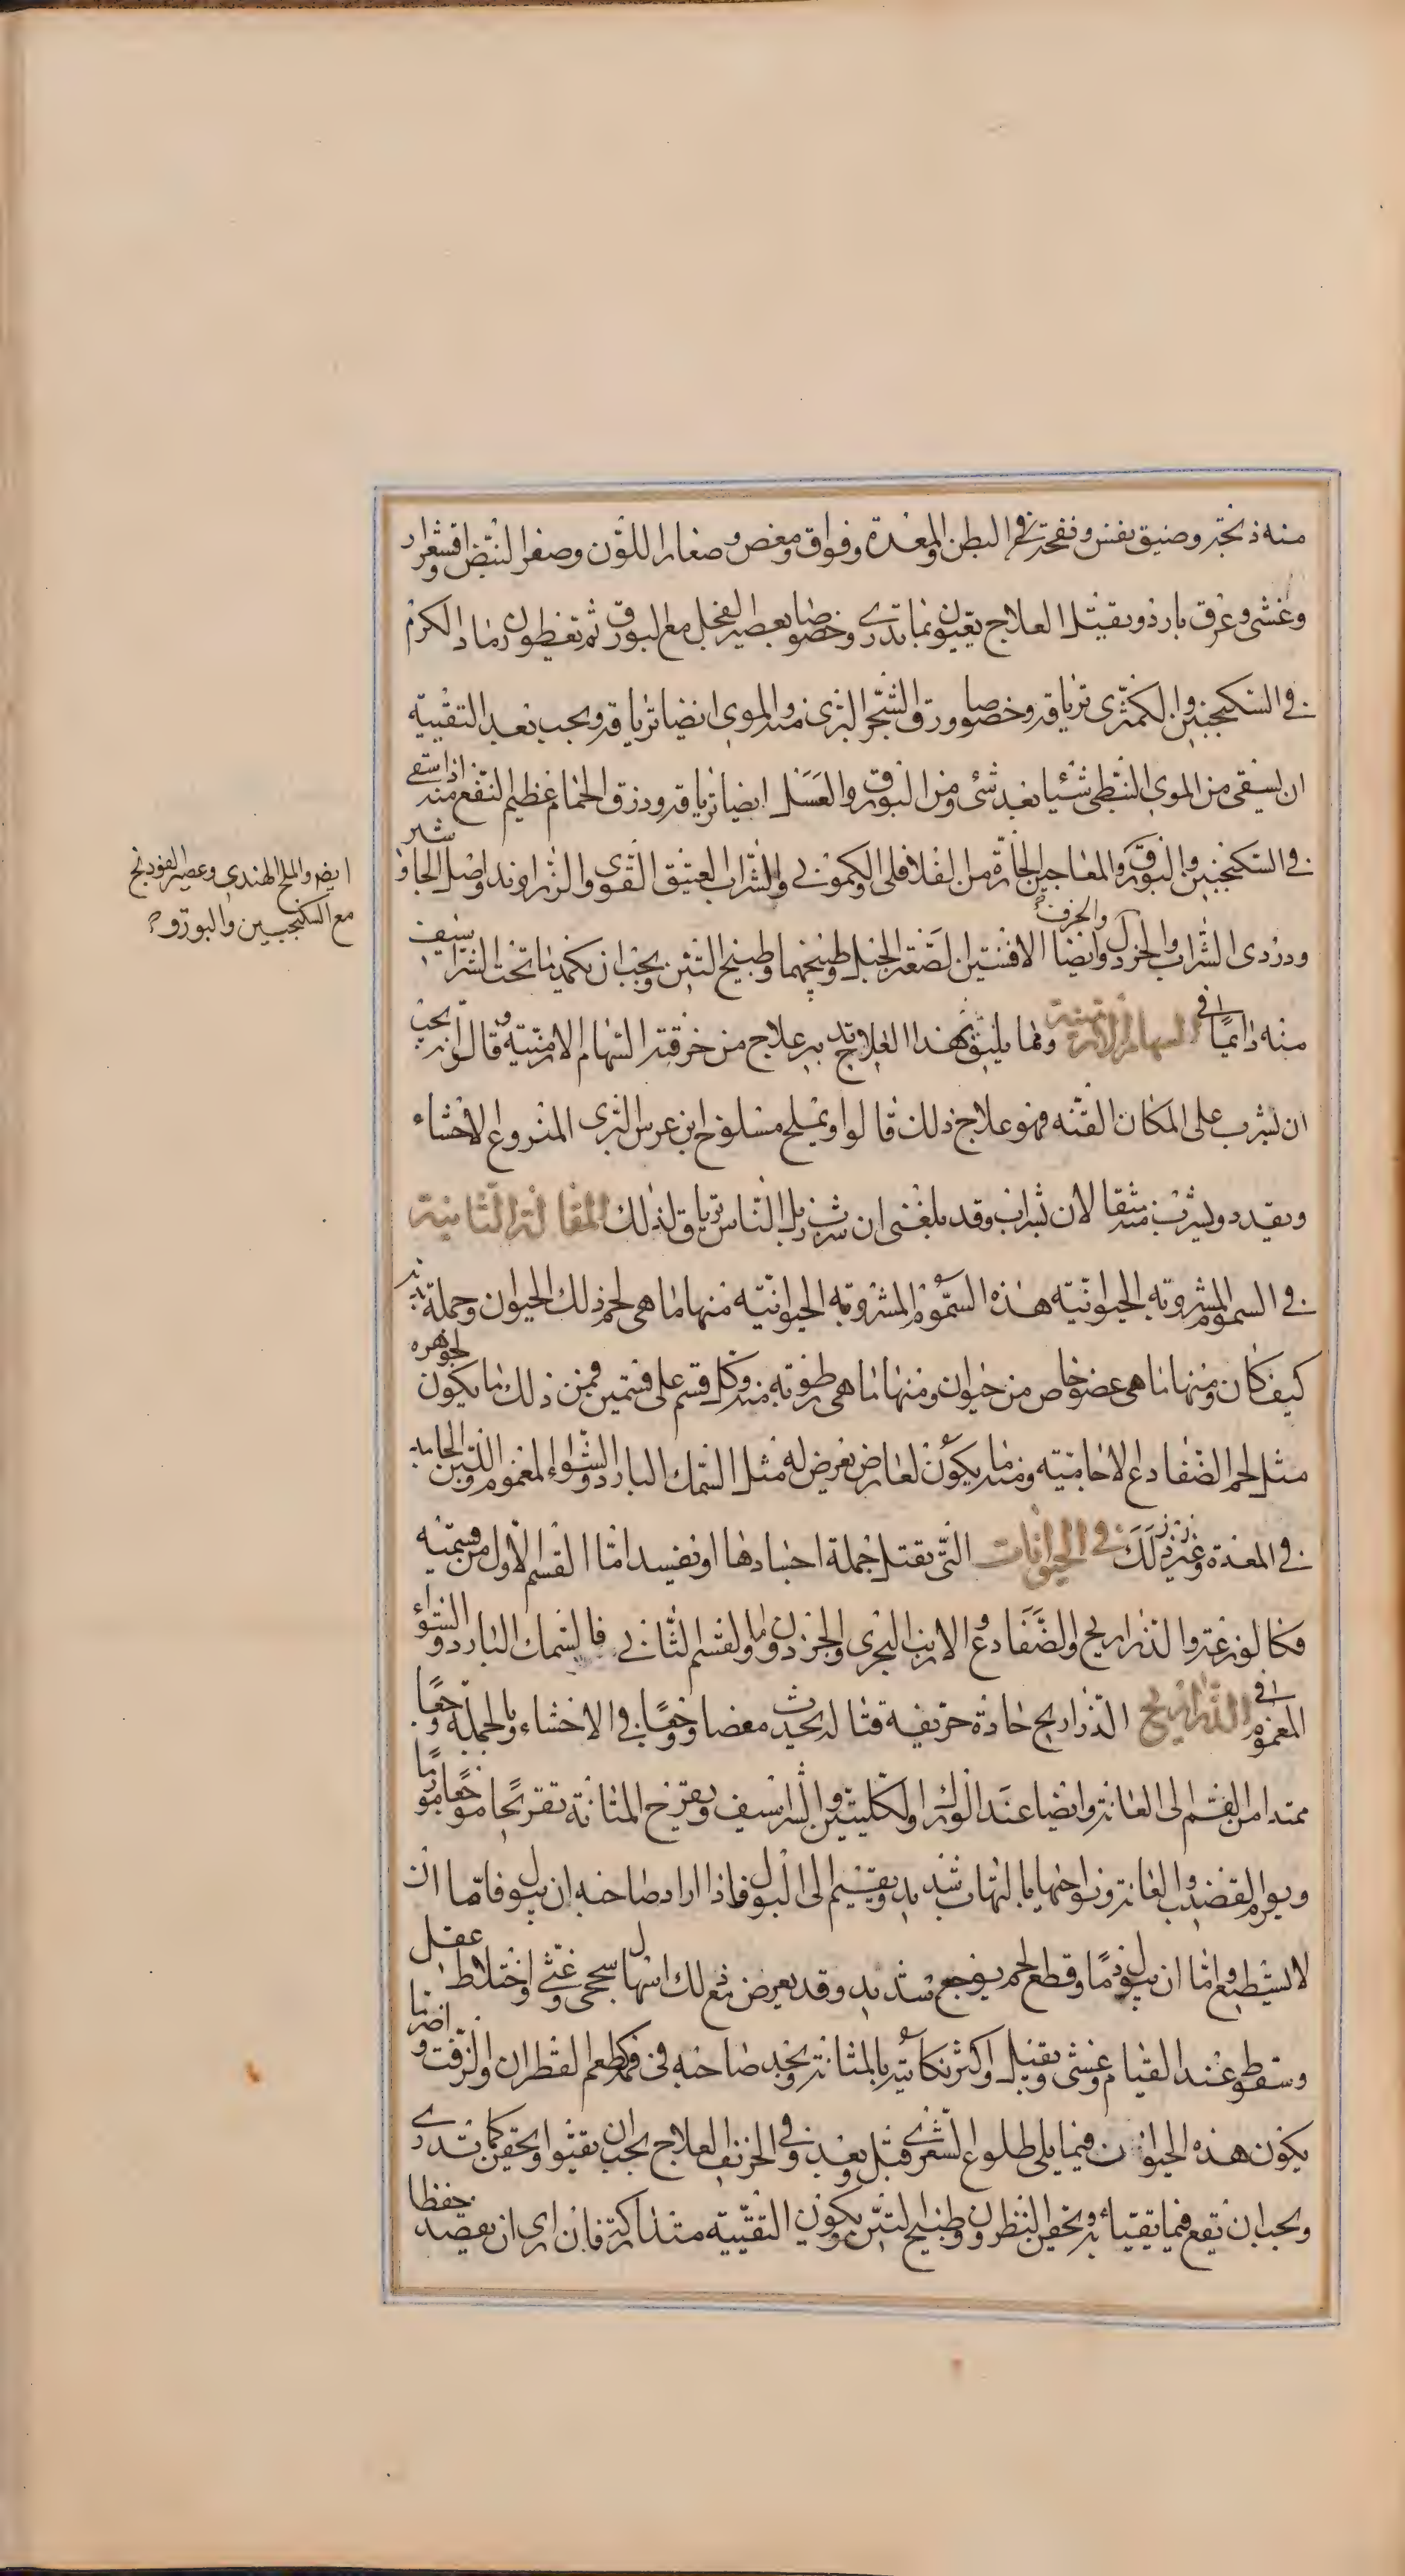 منه ذبحة وضيق نفس ونفخة في البطن والمعدة وفواق ومغص وصفار اللون وصغر النبض واقشعرار
وغشي وعرق بارد ويقيئ العلاج يتقيون بما تدري وخصوصا بعصير الفجل مع البورق ثم يغطون رماد الكرم
في السكنجبين والكمثرى ترياقه وخصوصا ورق الشجر البري منه والموي ايضا ترياقه ويجب بعد التقيية
ان يسقى من الموي النبطي شئيا بعد شئ ومن البورق والعسل ايضا ترياقه وذرق الحمام عظيم النفع منه اذا سقي
في السكنجبين والبورق والمعاجين الحارة من الفلافلي والكموني والشراب العتيق القوي والزراوند واصل الجاوشير
ودردى الشراب والخردل والحرف وايضا الافسنتين لصعتر الجبل وطبيخهما وطبيخ التين ويجب ان يكمد ما تحت الشراسيف
منه دائميا في السهام الارمنية ومما يليق بهذا العلاج تدبير علاج من خرقته السهام الارمنية وقالوا انه يجب
ان يشرب على المكان القنه فهو علاج ذلك قالوا ويملح مسلوخ ابن عرس البرى المنزوع الاحشاء
ويقدد ويشرب منه مثقالان بشراب وقد بلغنى ان شرب زبل الناس ترياق لذلك المقالة الثانية
في السموم المشروبه الحيوانيه هذه السموم المشروبه الحيوانيه منها ما هى لحم ذلك الحيوان وجملة بدنه
كيف كان ومنها ما هى عضو خاص من حيوان ومنها ما هى رطوبه منه وكل قسم على قسمين فمن ذلك ما يكون لجوهره
مثل لحم الضفادع الاجاميه ومنه ما يكون لعارض يعرض له مثل السمك البارد والشواء المغموم واللبن الجامد
في المعدة وغير ذلك في الحيوانات التى يقتل جملة اجسادها او يفسد اما القسم الاول من قسميه
فكالوزغه والذراريح والضفادع والارنب البحرى والحرذون واما القسم الثانى فالسمك البارد والشواء
المغموم في الذراريح الذراريح حادة حريفه قتاله يحدث مغصا ووجعا في الاحشاء وبالجملة وجعا
ممتدا من الفم الى العانة وايضا عند الورك والكليتين والشراسيف ويقرح المثانة تقريحا موجعا مورما
ويورم القضيب والعانة ونواحيها بالتهاب شديد ويقيم الى البول فاذا اراد صاحبه ان يبول فاما ان
لا يستطيع واما ان يبول دما وقطع لحم بوجع شديد وقد يعرض مع ذلك اسهال سحجى وغثى واختلاط عقل
وسقوط عند القيام وغشى وثقيل واكثر نكائته بالمثانة ويجد صاحبه فى فمه كطعم القطران والزفت واضر ما
يكون هذه الحيوان فيما يلى طلوع الشعرى قبل وبعد وفى الخريف العلاج يجب ان يقيئوا ويحقن كما تدرى
ويجب ان يقع فيما يتقياء به ويحقن النطرون وطبيخ التين ويكون التقيية متداركة فان راى ان يفصد حفظا
ايضه والملح الهندي وعصير الفودنج
مع السكنجبين والبورق